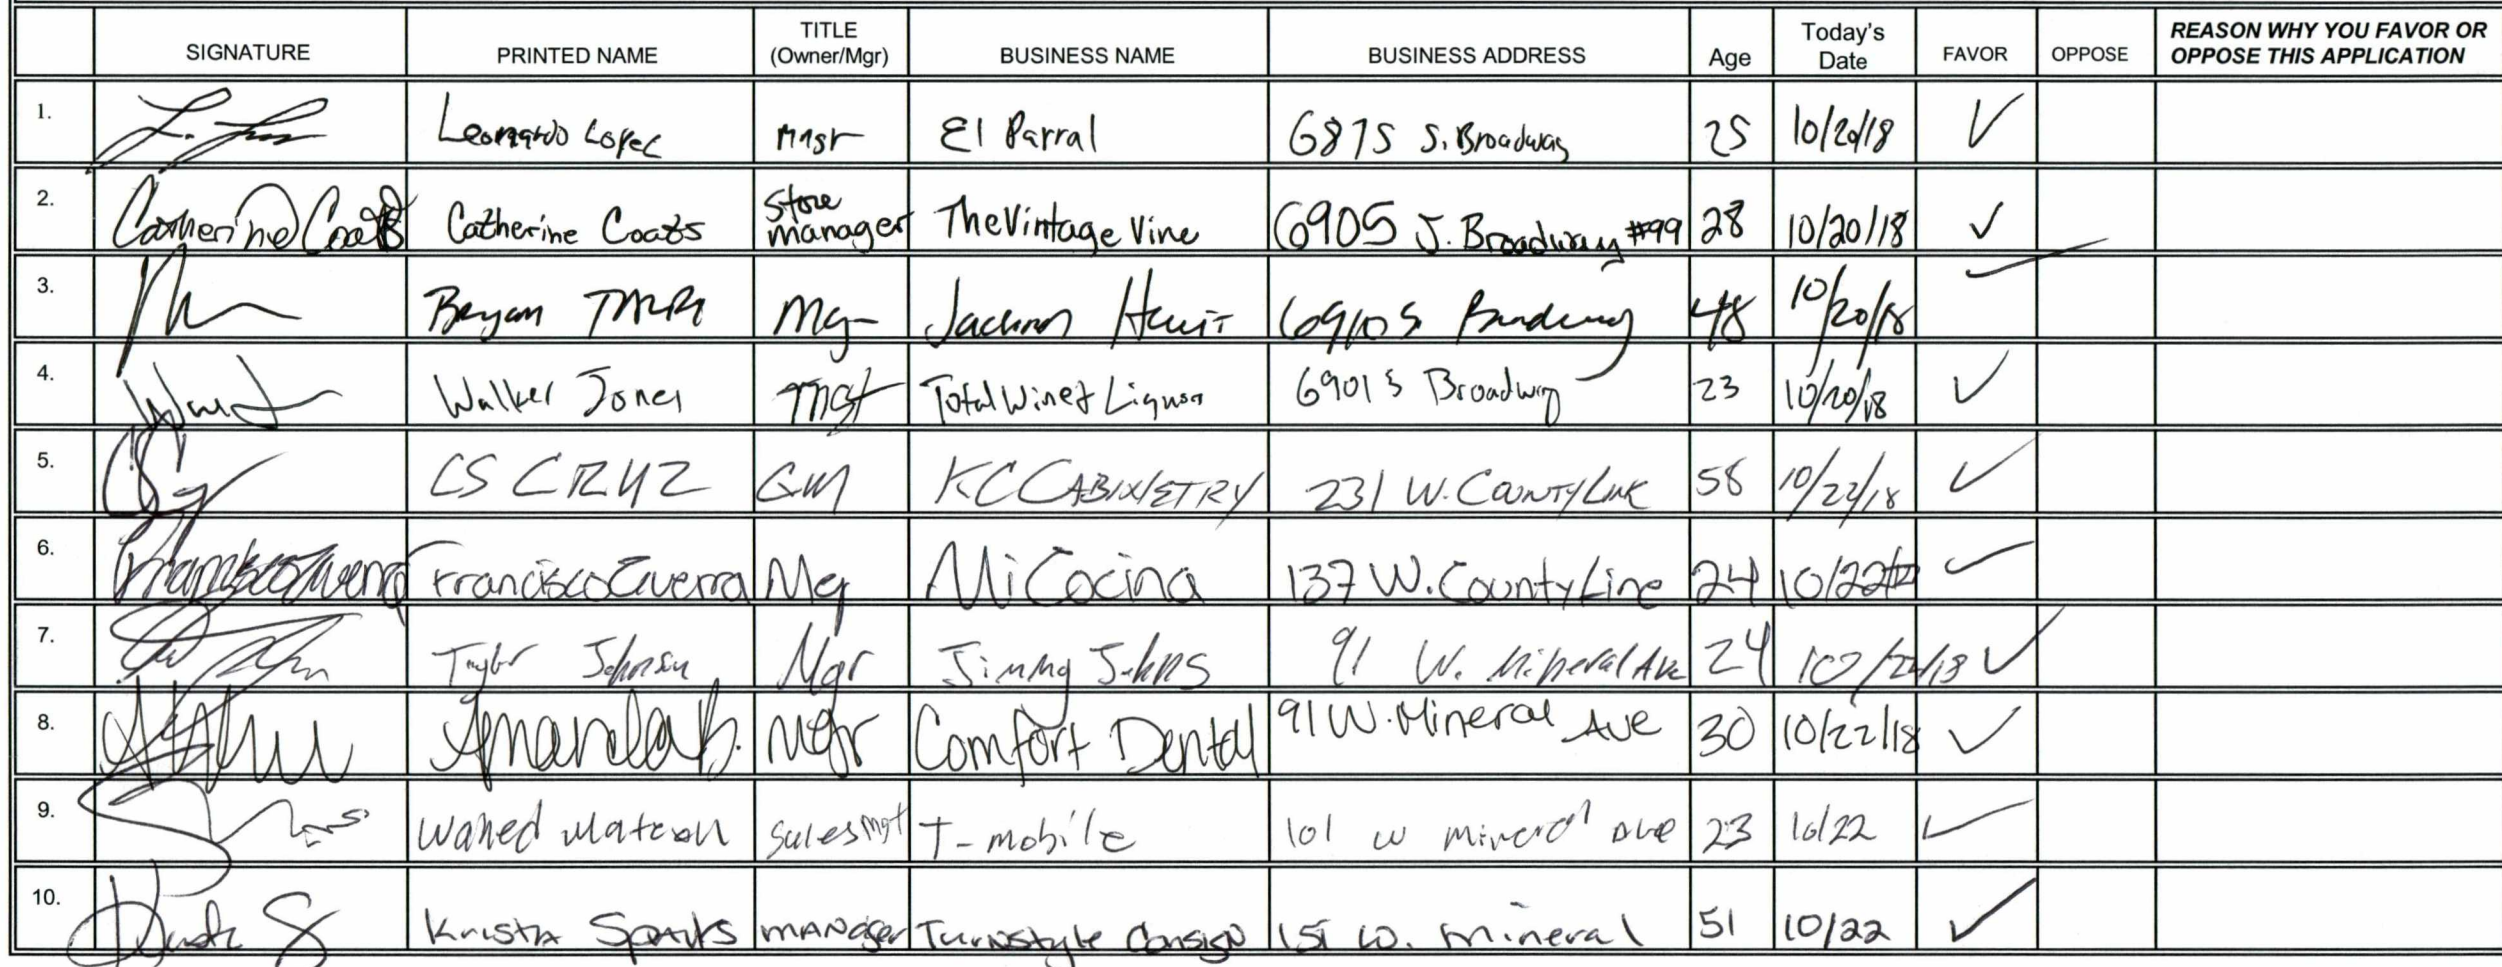 SIGNATURE PRINTED NAME TITLE (Owner/Mgr) BUSINESS NAME BUSINESS ADDRESS Age Today's Date FAVOR OPPOSE REASON WHY YOU FAVOR OR OPPOSE THIS APPLICATION
1. Leonardo Lopez mngr El Parral 6875 S. Broadway 25 10/20/18 ✓
2. Catherine Coats Catherine Coats Store manager The Vintage Vine 6905 S. Broadway #99 28 10/20/18 ✓
3. Bryan Mgr Jackson Hewitt 6910 S. Broadway 48 10/20/18 ✓
4. Walker Jones mgr Total Wine & Liquor 6901 S Broadway 23 10/20/18 ✓
5. CS CRUZ GM KC CABINETRY 231 W. COUNTY LINE 58 10/22/18 ✓
6. Francisco Guerra Francisco Guerra Mg Mi Cocina 137 W. County Line 24 10/22 ✓
7. Tyler Johnson Mgr Jimmy Johns 91 W. Mineral Ave 24 ✓
8. Amanda B. Mgr Comfort Dental 91 W. Mineral Ave 30 10/22/18 ✓
9. Waheed Sales Mgt T-mobile 101 W Mineral Ave 23 10/22 ✓
10. Krista Sparks MANager Turnstyle Consign 151 W. Mineral 51 10/22 ✓